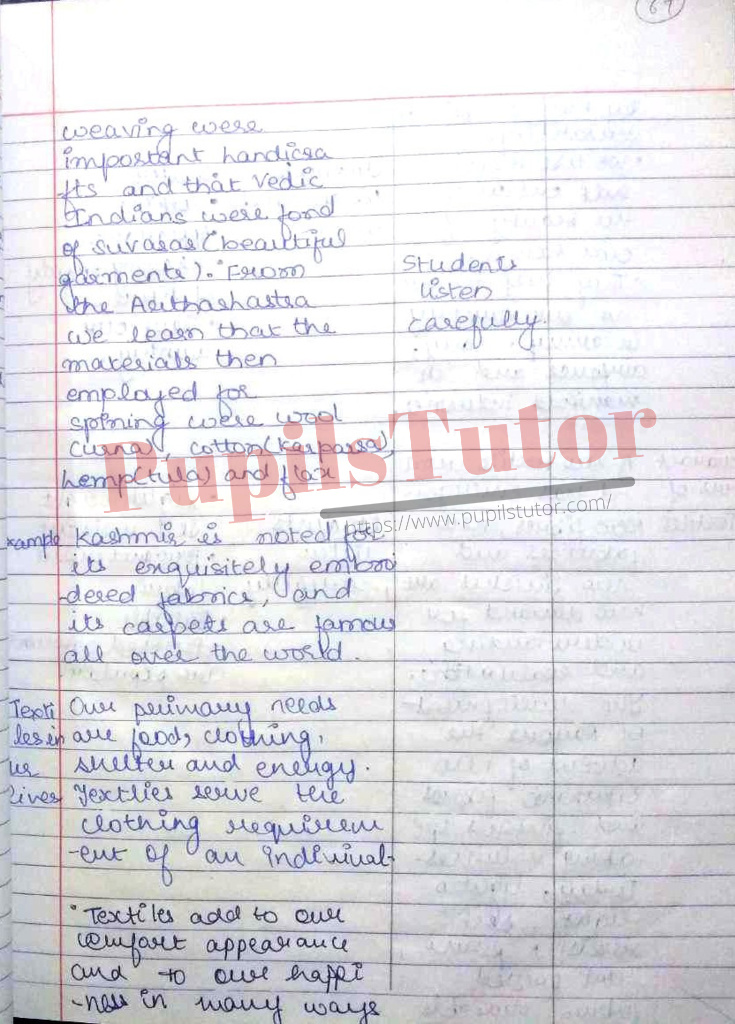 67
weaving were
important handicra
fts and that vedic
Indians were fond
of suvasas (beautiful
garments). From
the Arithashastra
we learn that the
materials then
employed for
spining were wool
(urna), cotton (Karpassa),
hemp (tula) and flax
Students
listen
carefully.
PupilsTutor
https://www.pupilstutor.com/
xample Kashmir is noted for
its exquisitely embroi
-dered fabrics, and
its carpets are famous
all over the world.
Texti Our primary needs
les in are food, clothing,
ur shelter and energy.
lives Textlies serve the
clothing requirem
-ent of an indiviual-
Textiles add to our
comfort appearance
and to our happi
-ness in many ways